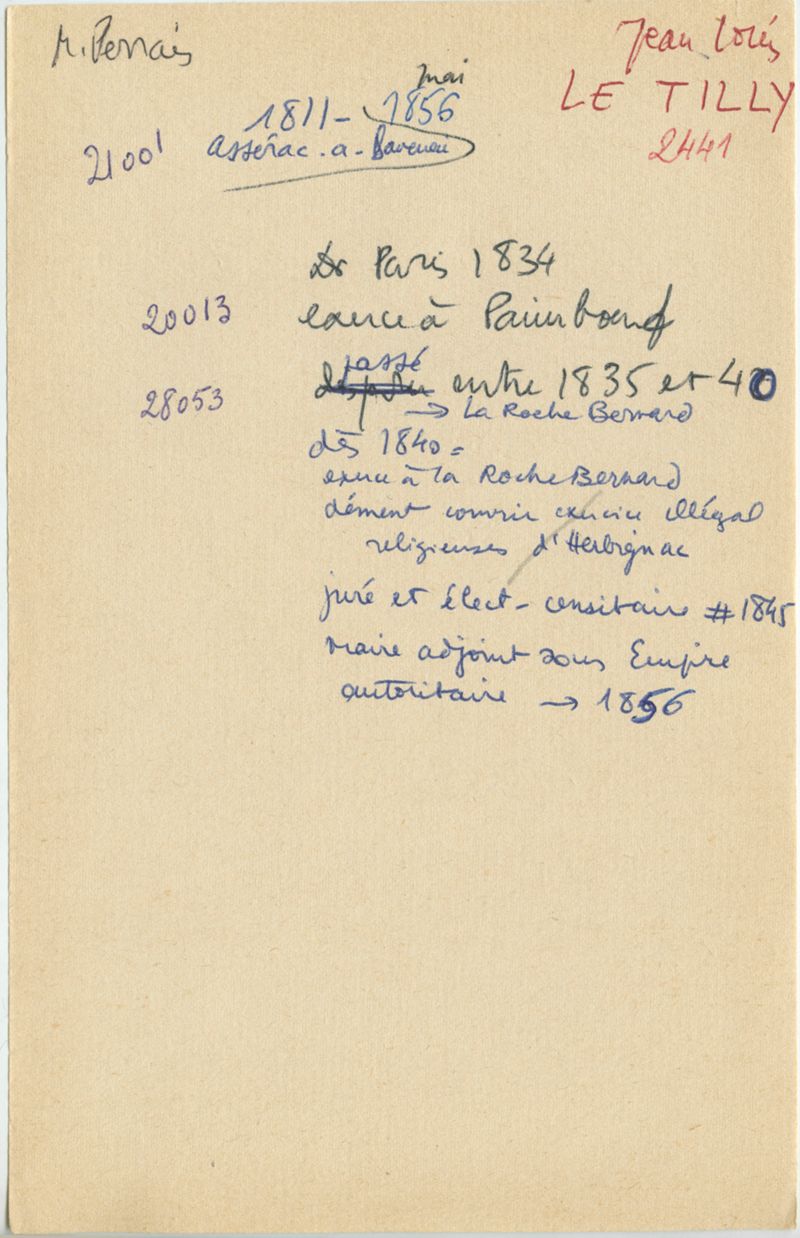 M. Perrais
Jean Louis
LE TILLY
2441
mai
1811 - 1856
21001
Assérac. a -
Dr Paris 1834
20013
exerce à Paimboeuf
passé
entre 1835 et 40
28053
→ La Roche Bernard
dès 1840 =
exerce à la Roche Bernard
dément couvrir exercice illégal
religieuses d'Herbignac
juré et élect - censitaire # 1845
maire adjoint sous Empire
autoritaire → 1856